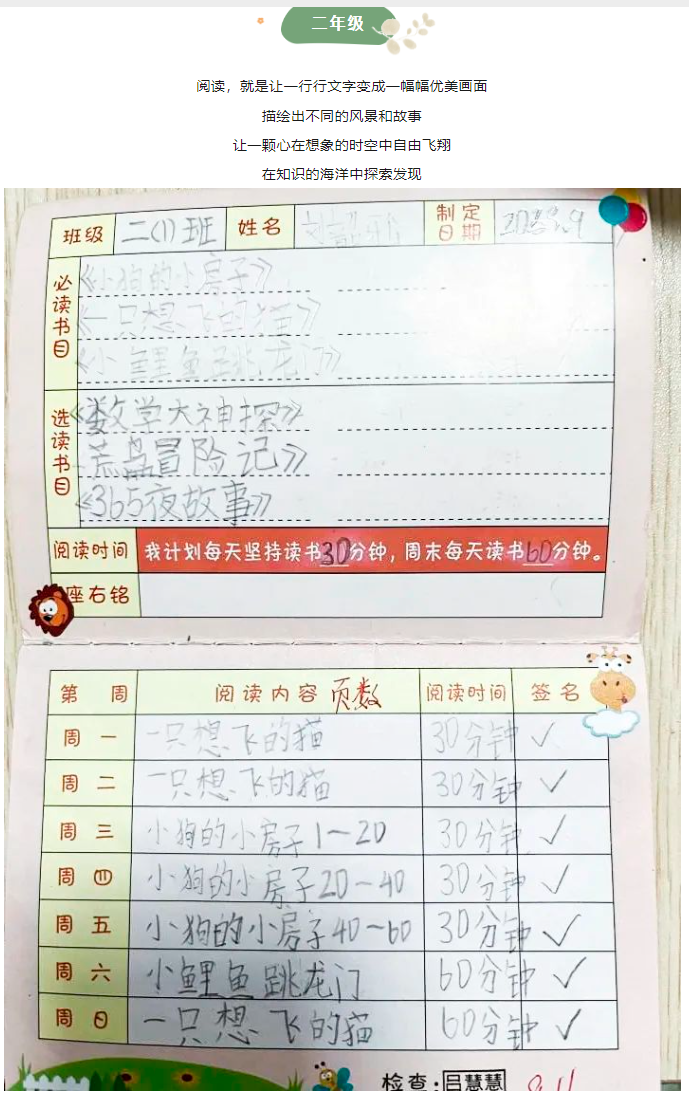 二年级
阅读，就是让一行行文字变成一幅幅优美画面
描绘出不同的风景和故事
让一颗心在想象的时空中自由飞翔
在知识的海洋中探索发现
班级 二(1)班 姓名 制定日期
必读书目
《小狗的小房子》
《一只想飞的猫》
《小鲤鱼跳龙门》
选读书目
《数学大神探》
荒岛冒险记》
《365夜故事》
阅读时间 我计划每天坚持读书30分钟，周末每天读书60分钟。
座右铭
第 周 阅读内容 页数 阅读时间 签名
周一 一只想飞的猫 30分钟 ✓
周二 一只想飞的猫 30分钟 ✓
周三 小狗的小房子1～20 30分钟 ✓
周四 小狗的小房子20～40 30分钟 ✓
周五 小狗的小房子40～60 30分钟 ✓
周六 小鲤鱼跳龙门 60分钟 ✓
周日 一只想飞的猫 60分钟 ✓
检查：吕慧慧